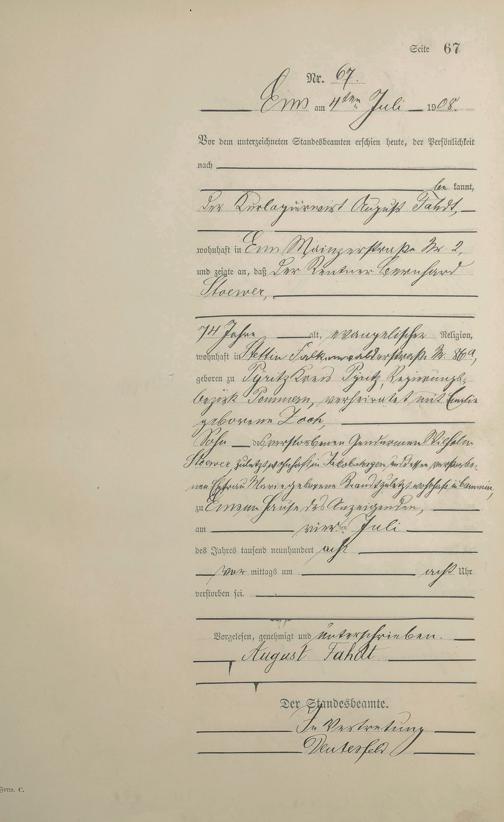 Seite 67
Nr. 67.
Ems am 4ten Juli 1908.
Vor dem unterzeichneten Standesbeamten erschien heute, der Persönlichkeit
nach
be kannt,
der August Fahdt,
wohnhaft in Ems Mainzerstraße Nr 2,
und zeigte an, daß der Rentner Bernhard
Stoewer,
74 Jahre alt, evangelischer Religion,
wohnhaft in Stettin Falkenwalderstraße Nr. 86a,
geboren zu Pyritz Kreis Pyritz, Regierungs-
bezirk Pommern, verheiratet mit Emilie
geborene Zoch,
Sohn des verstorbenen Gendarmen Wilhelm
Stoewer, zuletzt wohnhaft in und dessen verstorbe-
nen Ehefrau Marie geborene zuletzt wohnhaft
zu Ems im Hause des Anzeigenden,
am vierten Juli
des Jahres tausend neunhundert acht
vor mittags um acht Uhr
verstorben sei.
Vorgelesen, genehmigt und unterschrieben.
August Fahdt
Der Standesbeamte.
In Vertretung
Form. C.